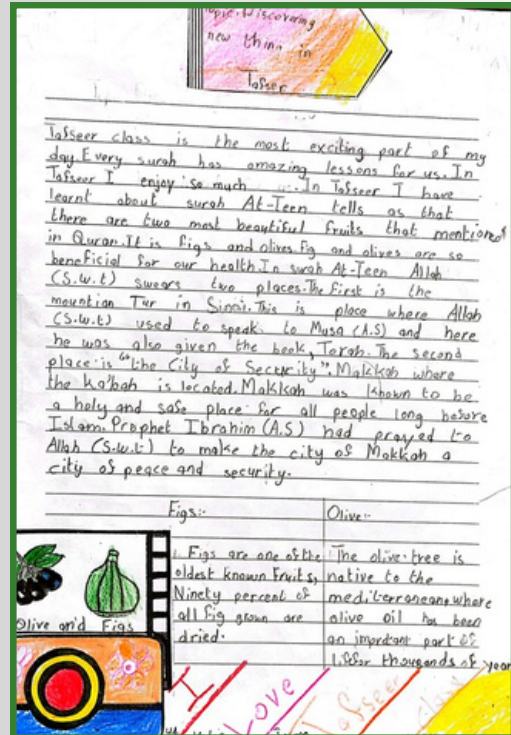 Topic:Discovering
new thing in
Tafseer
Tafseer class is the most exciting part of my
day. Every surah has amazing lessons for us. In
Tafseer I enjoy so much .... In Tafseer I have
learnt about surah At-Teen tells as that
there are two most beautiful fruits that mentioned
in Quran. It is figs and olives. fig and olives are so
beneficial for our health. In surah At-Teen Allah
(S.w.t) swears two places. The first is the
mountian Tur in Sinai. This is place where Allah
(S.w.t) used to speak to Musa (A.S) and here
he was also given the book, Torah. The second
place is "the City of Sectrity". Makkah where
the Ka'bah is located. Makkah was known to be
a holy and safe place for all people long before
Islam. Prophet Ibrahim (A.S) had prayed to
Allah (S.w.t) to make the city of Makkah a
city of peace and security.
Figs:-
Figs are one of the
oldest known fruits,
Ninety percent of
all fig grown are
dried.
Olive:-
The olive tree is
native to the
mediterranean, where
olive oil has been
an important part of
life for thousands of year
Olive and Figs
I Love Tafseer class